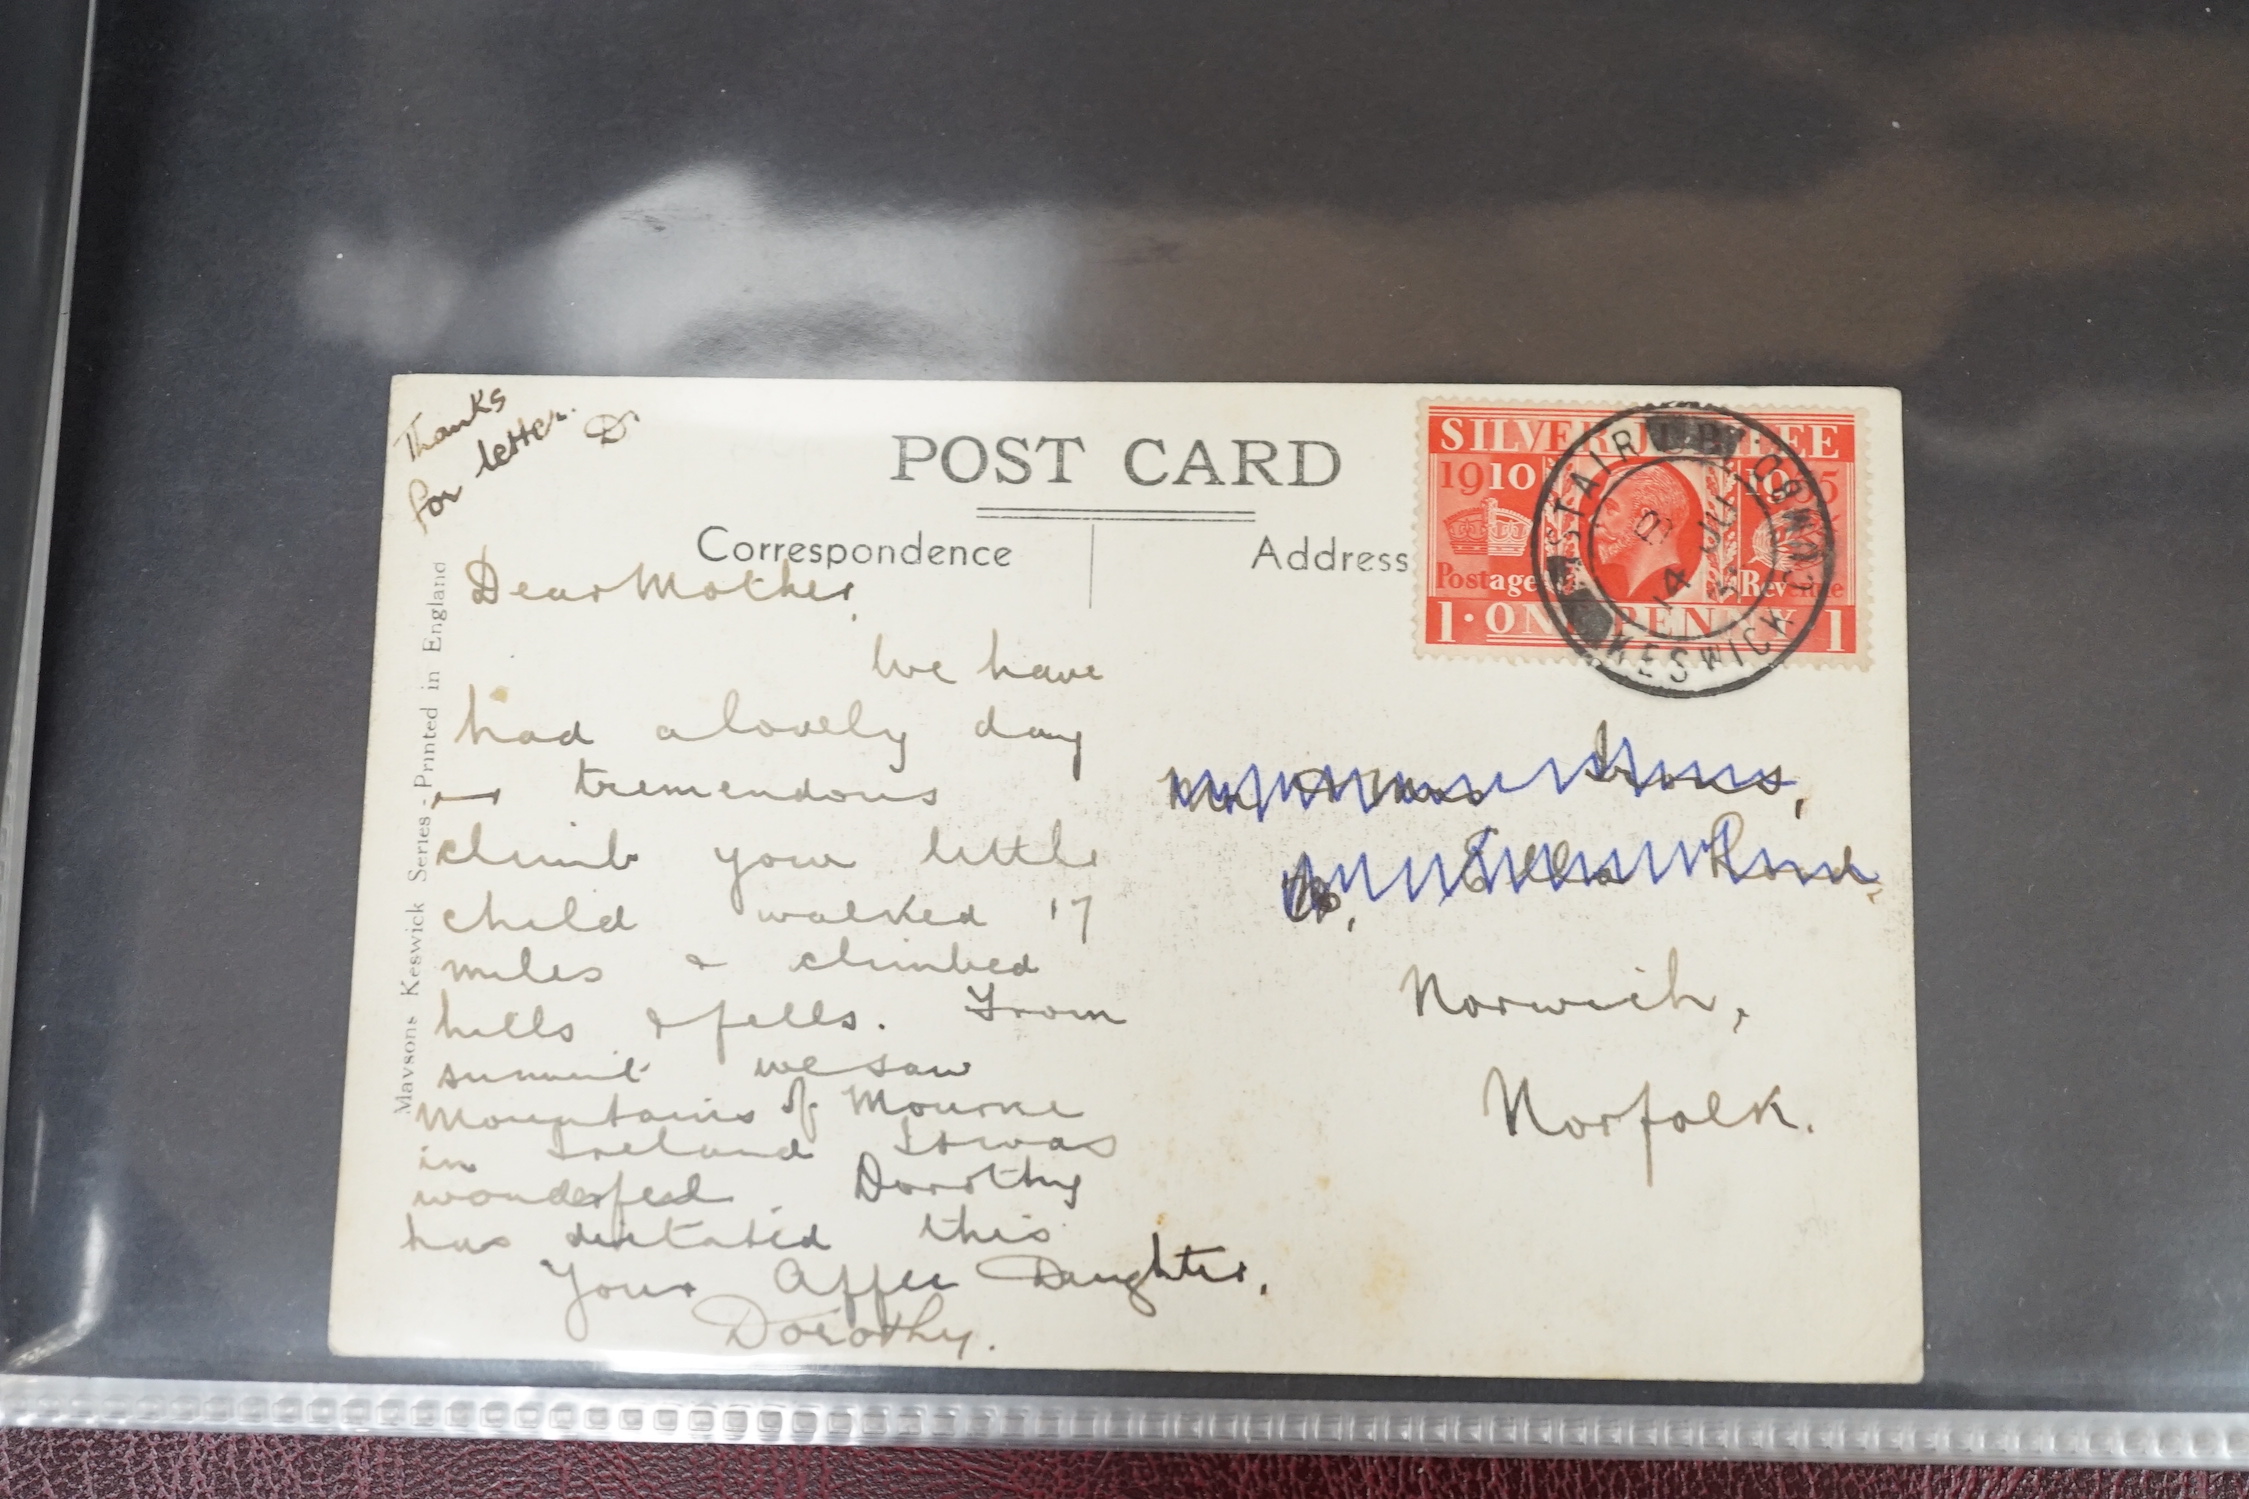 Thanks
for letter.
D.
POST CARD
Correspondence
Address
SILVER JUBILEE
1910 1935
Postage Revenue
1 · ONE PENNY 1
STAIR
KESWICK CUMB
14 JUL
Maysons Keswick Series - Printed in England
Dear Mother,
We have
had a lovely day
tremendous
climb your little
child walked 17
miles & climbed
hills & fells. From
summit we saw
Mountains of Mourne
in Ireland It was
wonderful. Dorothy
has dictated this
Your Affec Daughter,
Dorothy.
Road,
Norwich,
Norfolk.